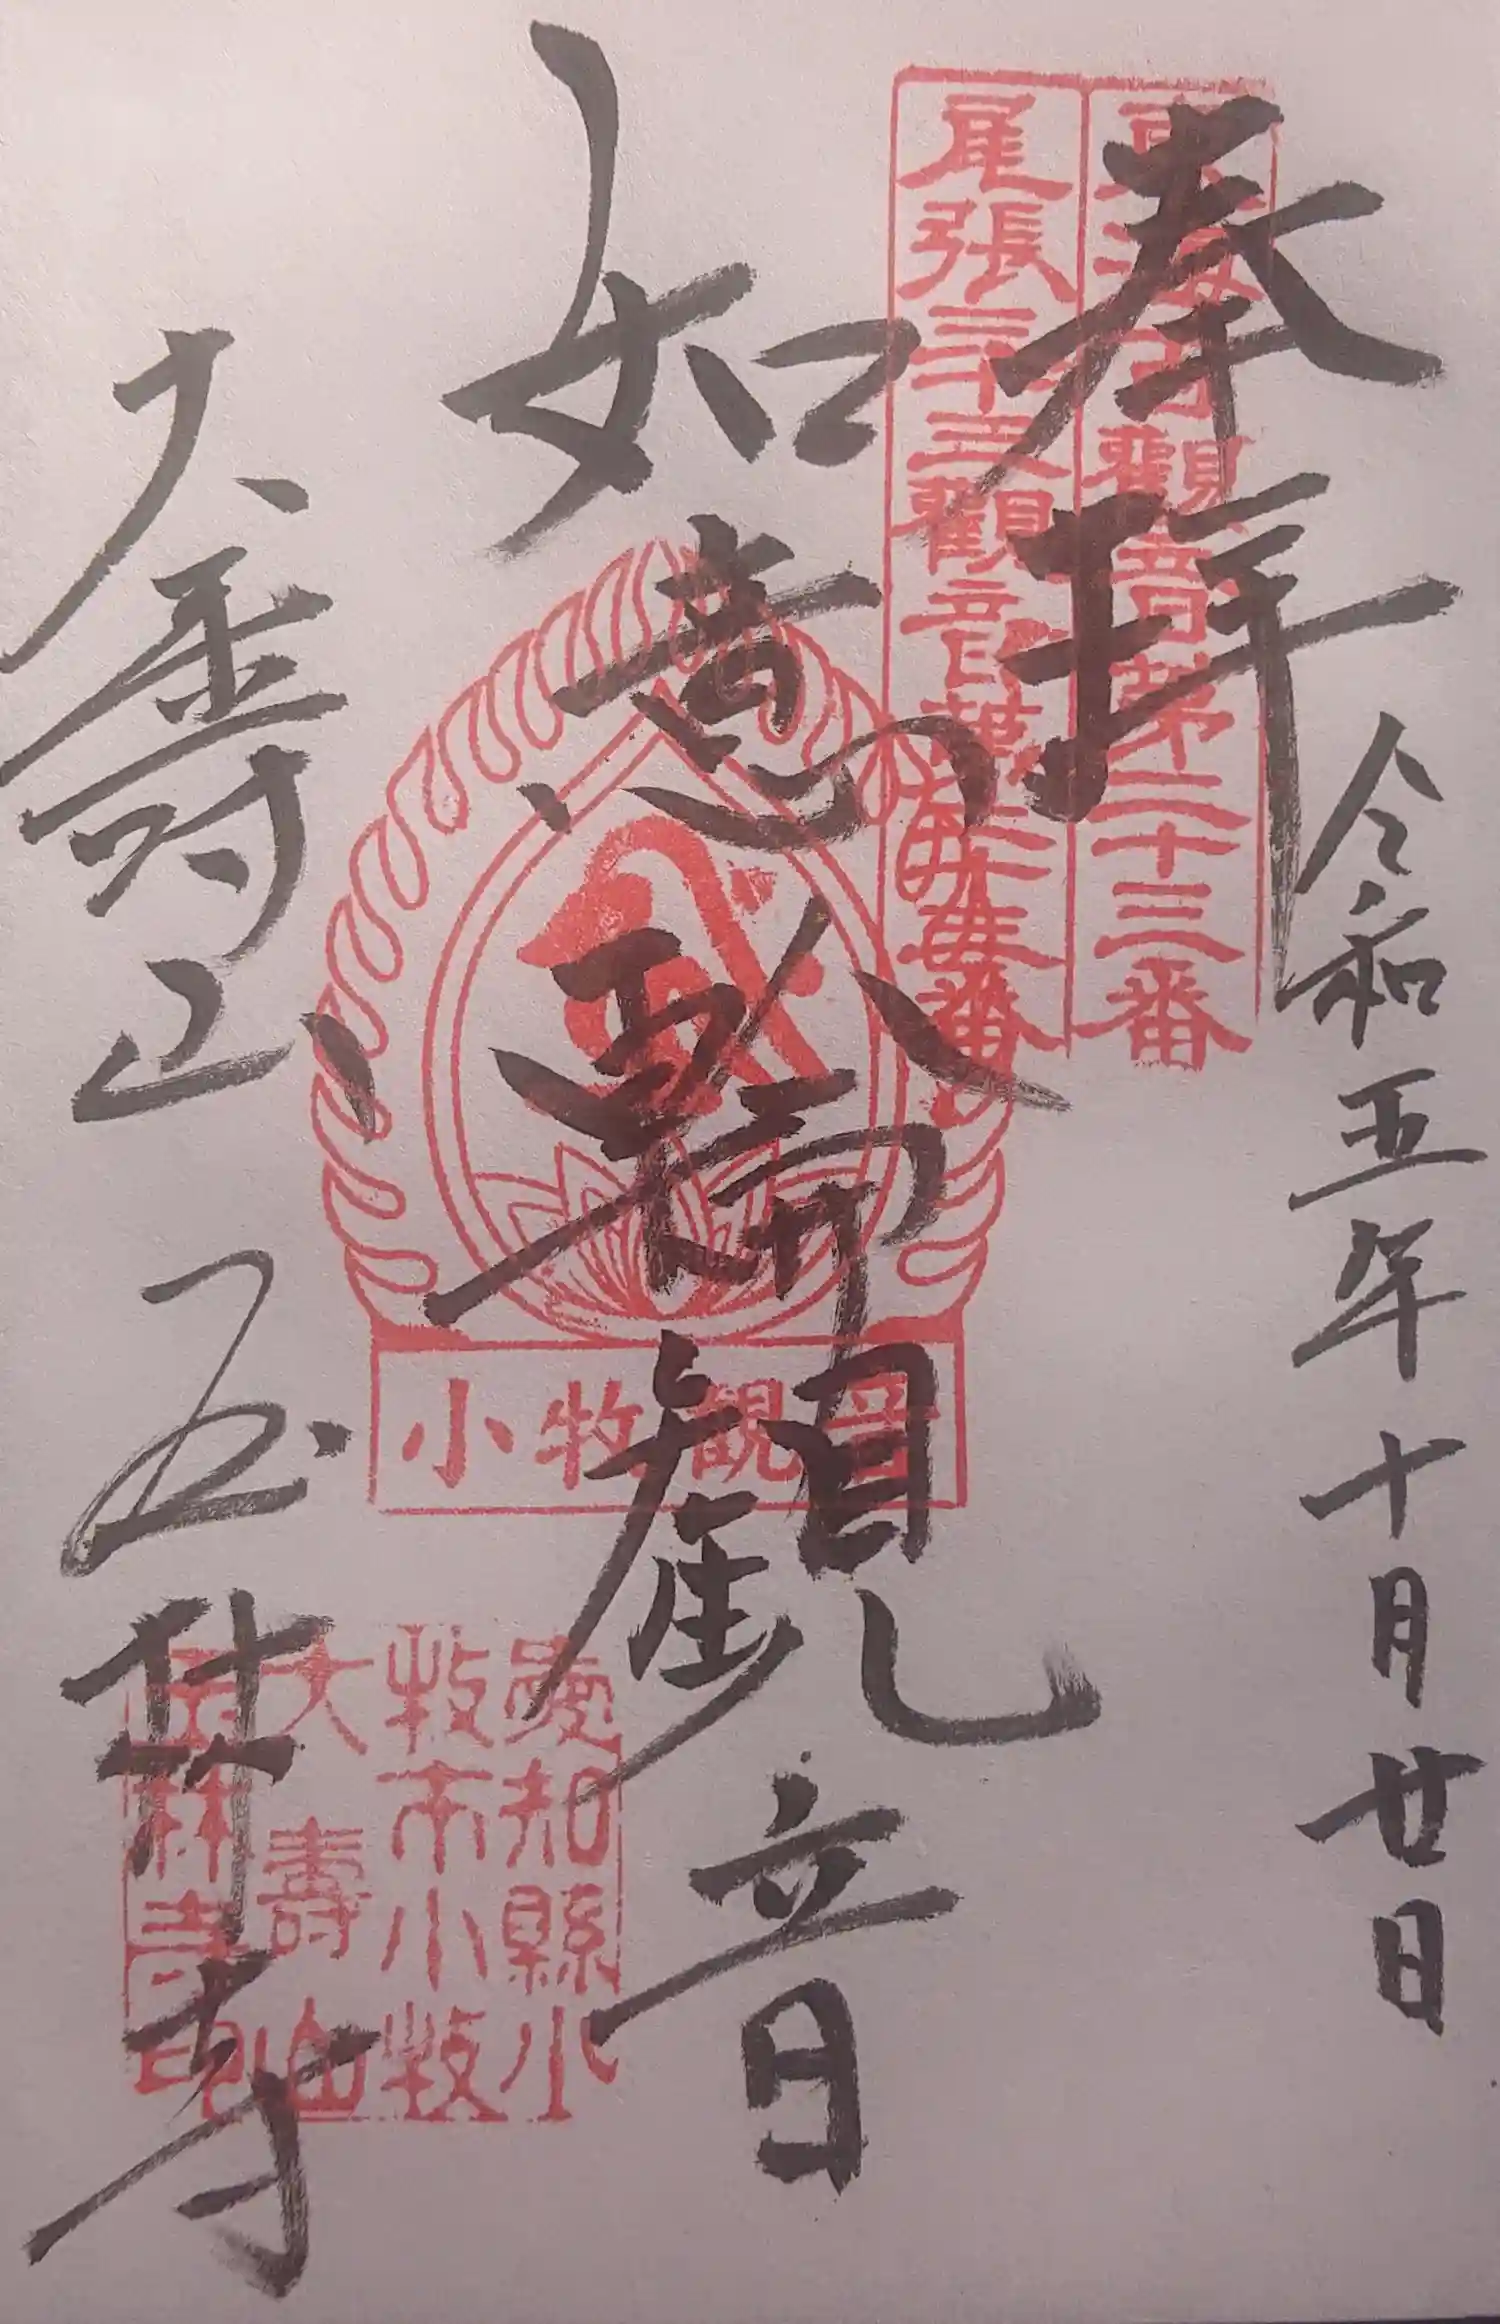 奉拝
令和五年十月廿日
東海百觀音第二十三番
尾張三十三觀音第二十五番
如意輪観音
小牧観音
大壽山
玉林寺
愛知縣小
牧市小牧
大壽山
玉林寺印